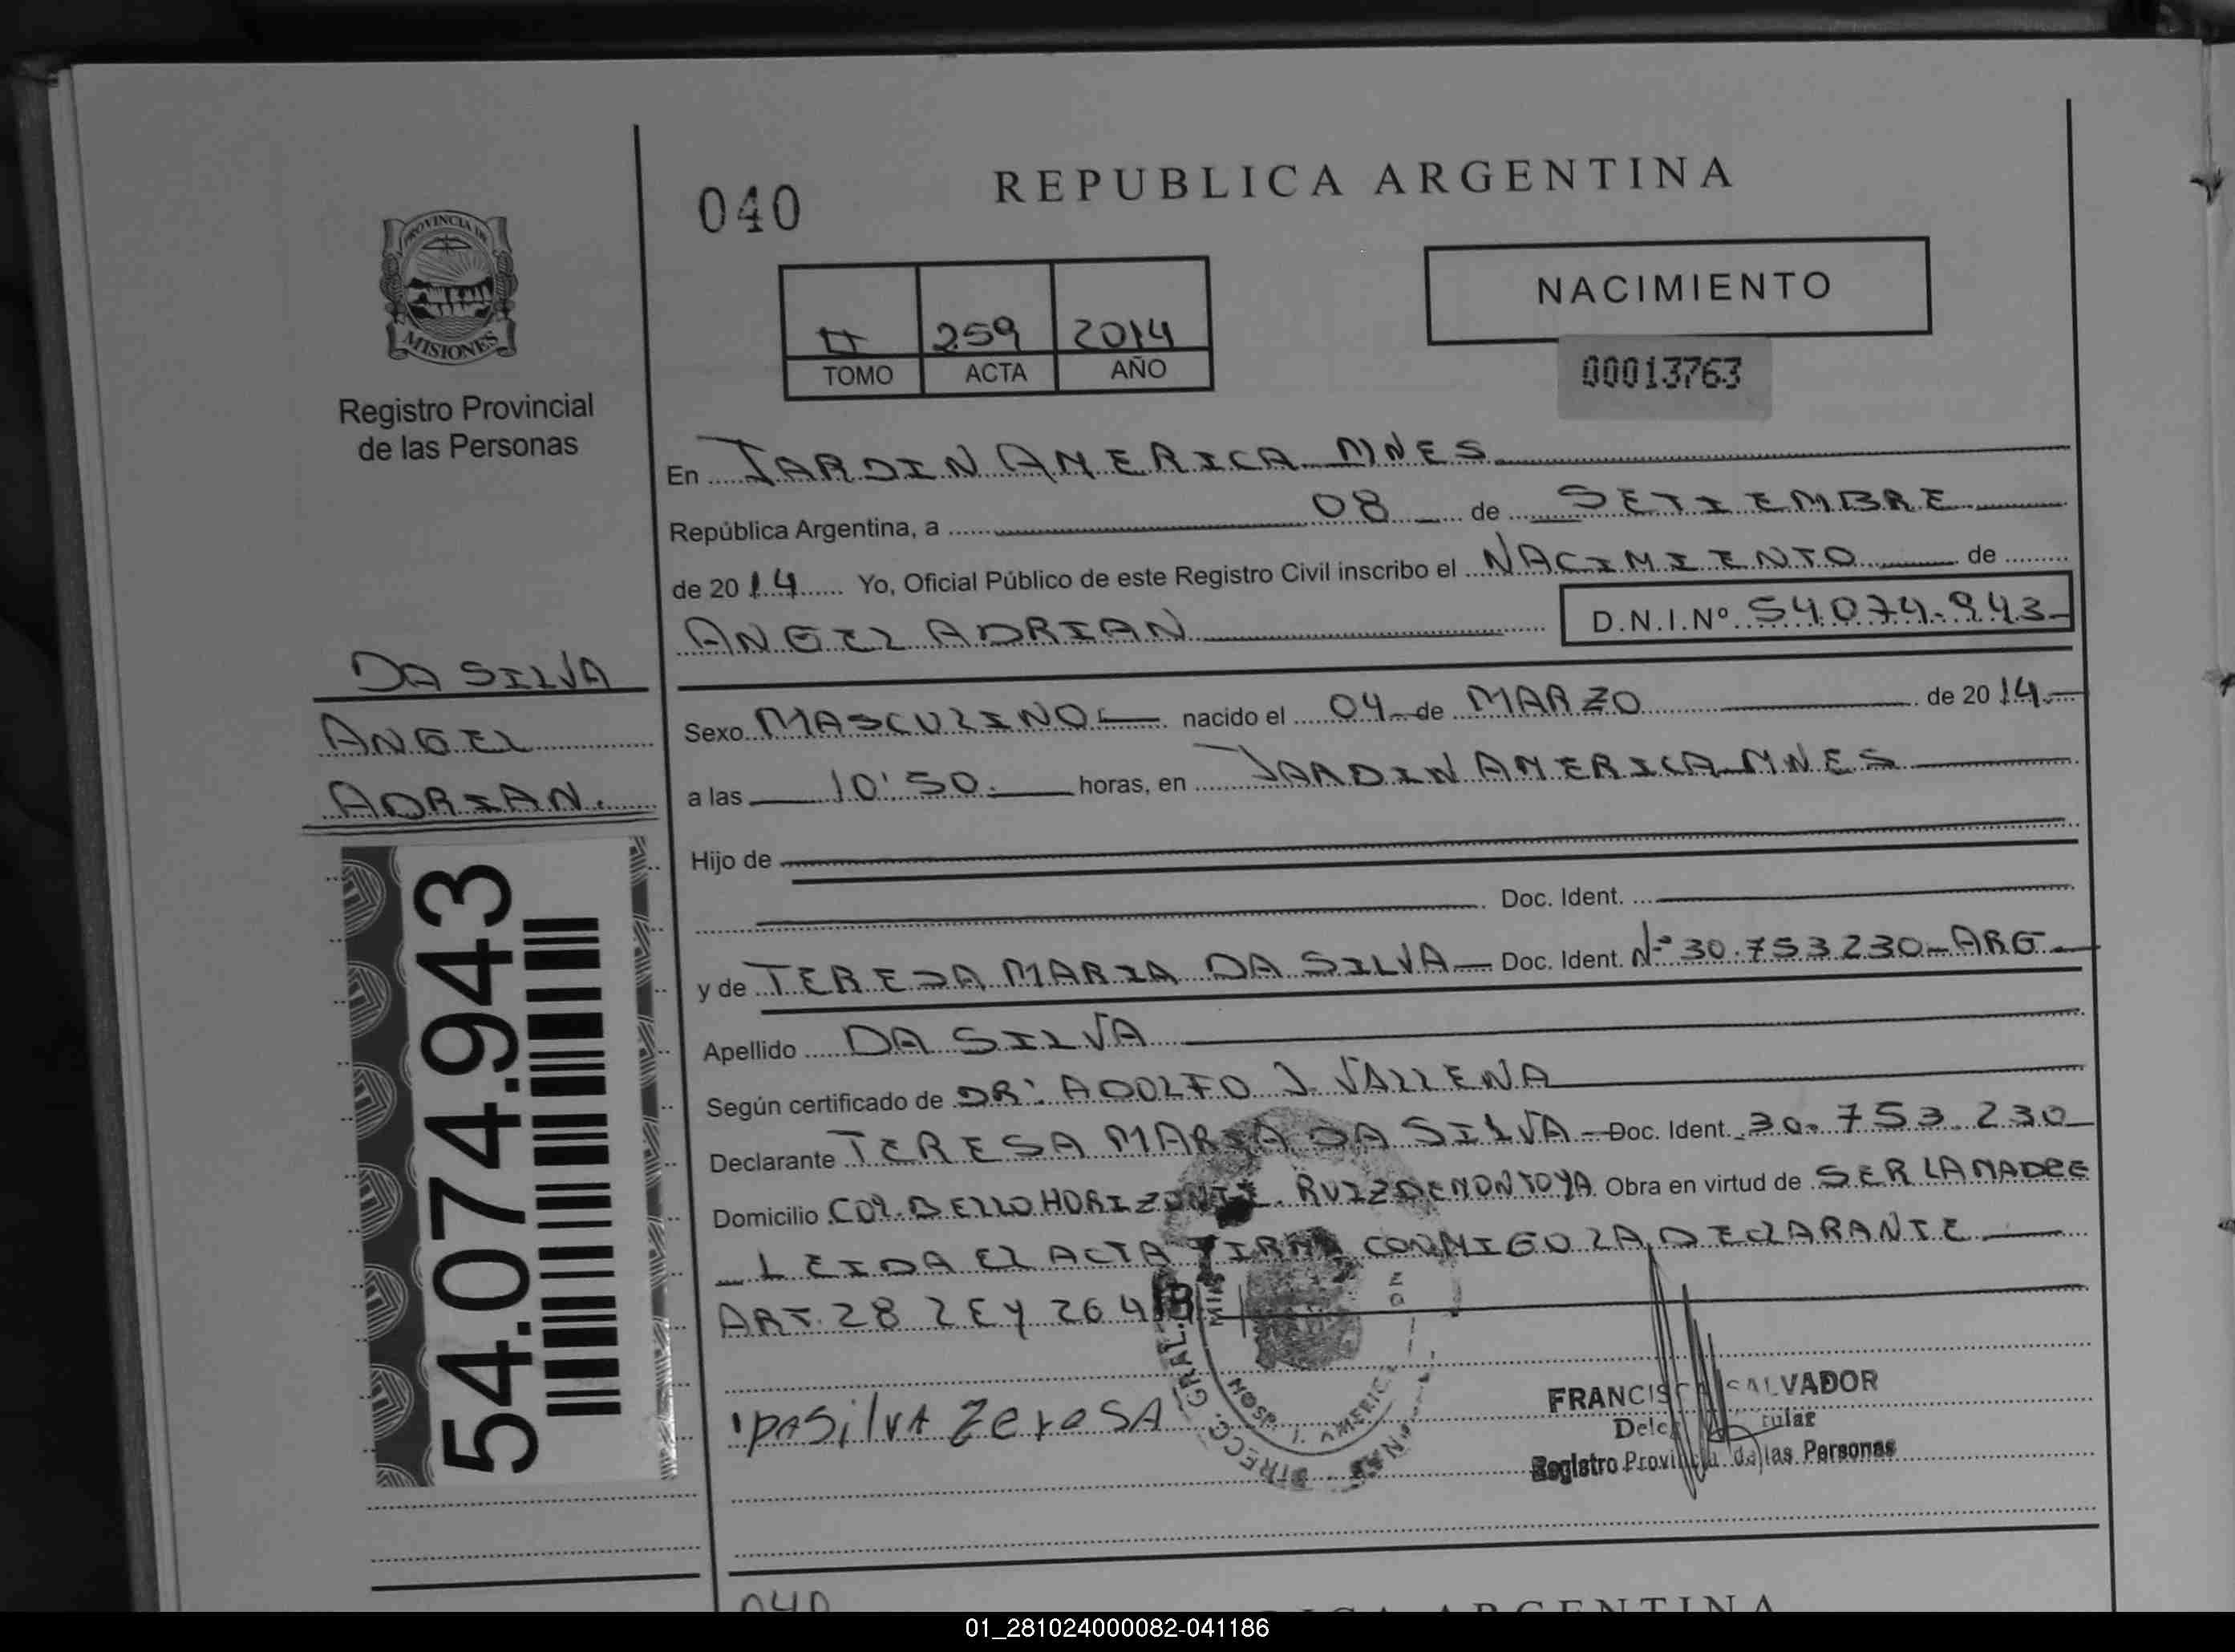 040
REPUBLICA ARGENTINA
PROVINCIA DE
MISIONES
Registro Provincial
de las Personas
II 259 2014
TOMO ACTA AÑO
NACIMIENTO
00013763
En JARDIN AMERICA MNES
República Argentina, a 08 de SETIEMBRE
de 2014 Yo, Oficial Público de este Registro Civil inscribo el NACIMIENTO de
ANGEL ADRIAN D.N.I.Nº 54.074.943
DA SILVA
ANGEL
ADRIAN.
54.074.943
Sexo MASCULINO nacido el 04 de MARZO de 2014
a las 10:50 horas, en JARDIN AMERICA MNES
Hijo de
Doc. Ident.
y de TERESA MARIA DA SILVA Doc. Ident. Nº 30.753230-ARG
Apellido DA SILVA
Según certificado de DR: ADOLFO J. VALLENA
Declarante TERESA MARIA DA SILVA Doc. Ident. 30.753.230
Domicilio COL. BELLO HORIZONTE. RUIZ DE MONTOYA Obra en virtud de SER LA MADRE
LEIDA EL ACTA FIRMA CONMIGO LA DECLARANTE
ART. 28 LEY 26413
DASilVA TereSA
DIRECC. GRAL.
FRANCISCA SALVADOR
Registro Provincial de las Personas
040
ARGENTINA
01_281024000082-041186